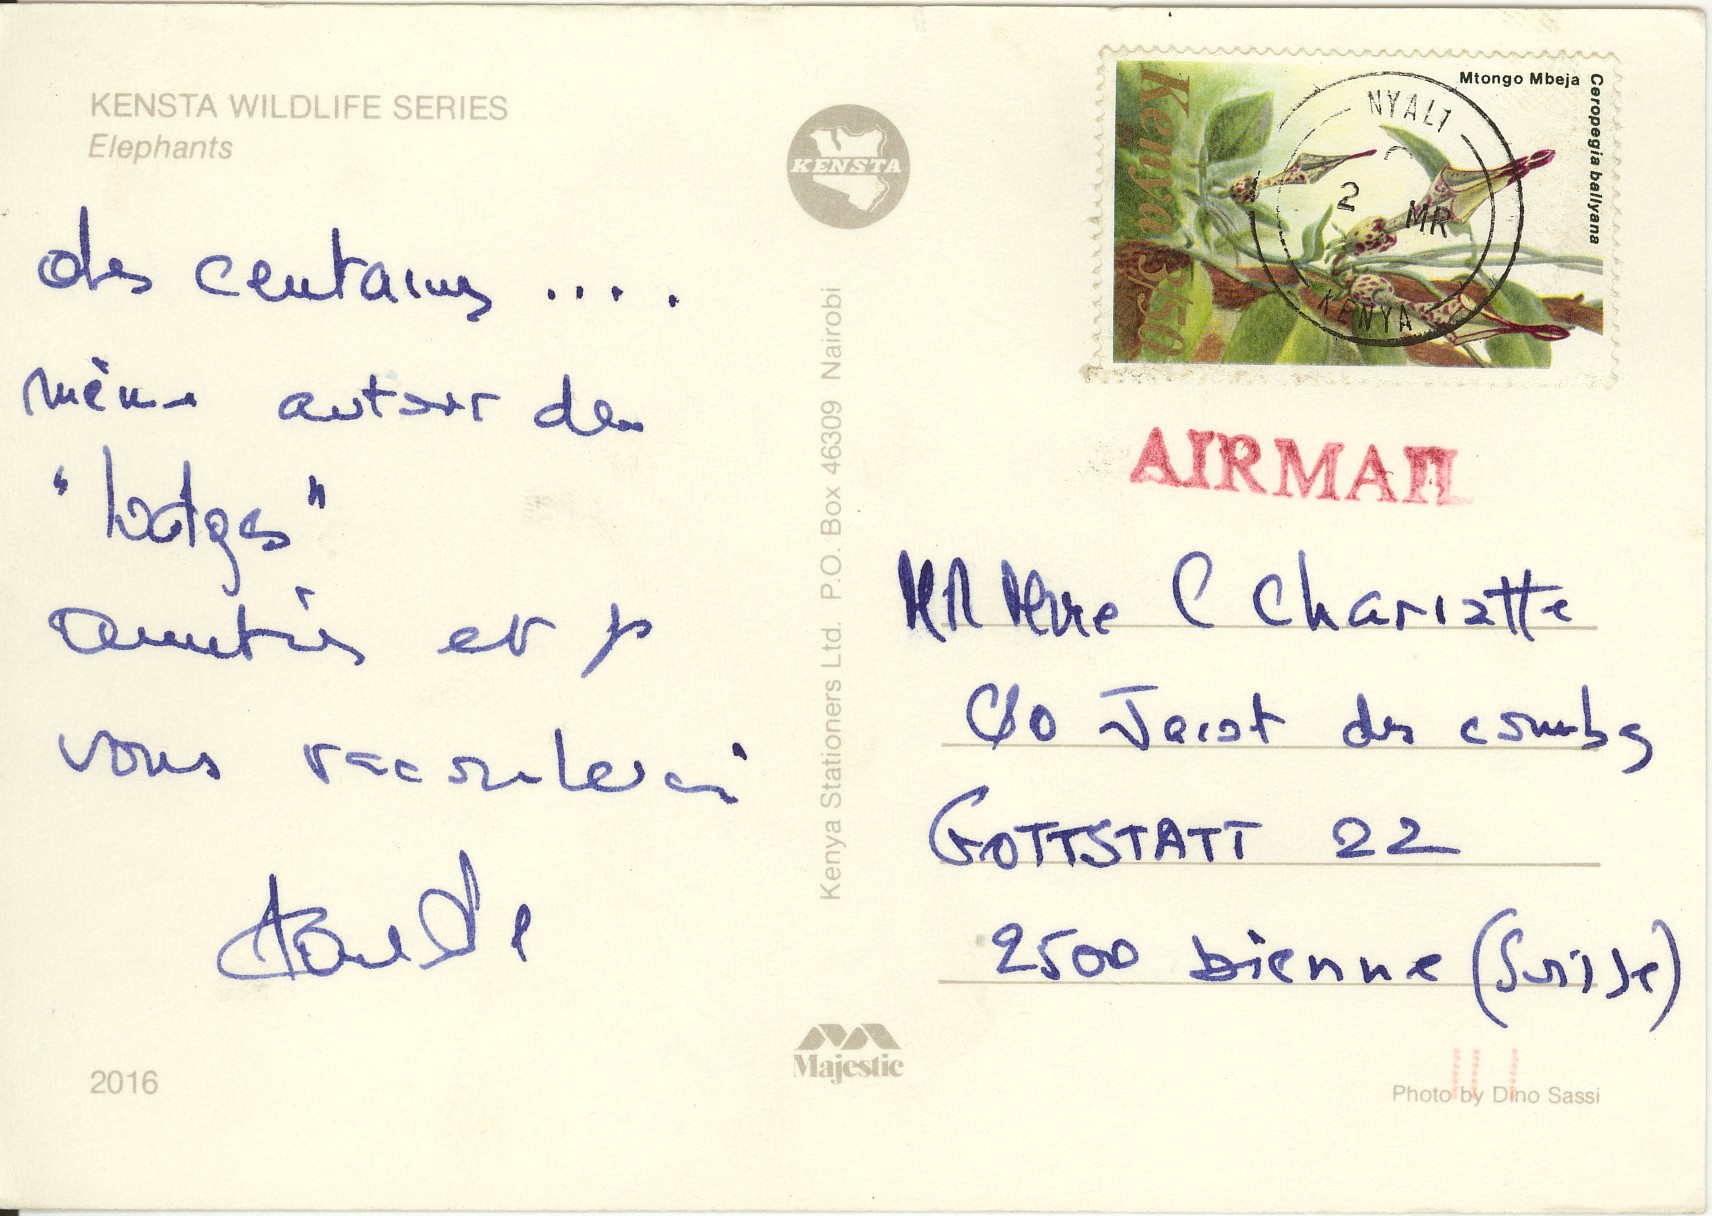 KENSTA WILDLIFE SERIES
Elephants
des centaines ....
même autour des
"lodges"
amitiés et je
vous raconterai
2016
KENSTA
Kenya Stationers Ltd. P.O. Box 46309 Nairobi
Majestic
Kenya 3/50
Mtongo Mbeja
Ceropegia ballyana
NYALI
2 MR
KENYA
AIRMAIL
MR Mme C Charlotte
C/o Jacot des combes
GOTTSTATT 22
2500 bienne (Suisse)
Photo by Dino Sassi